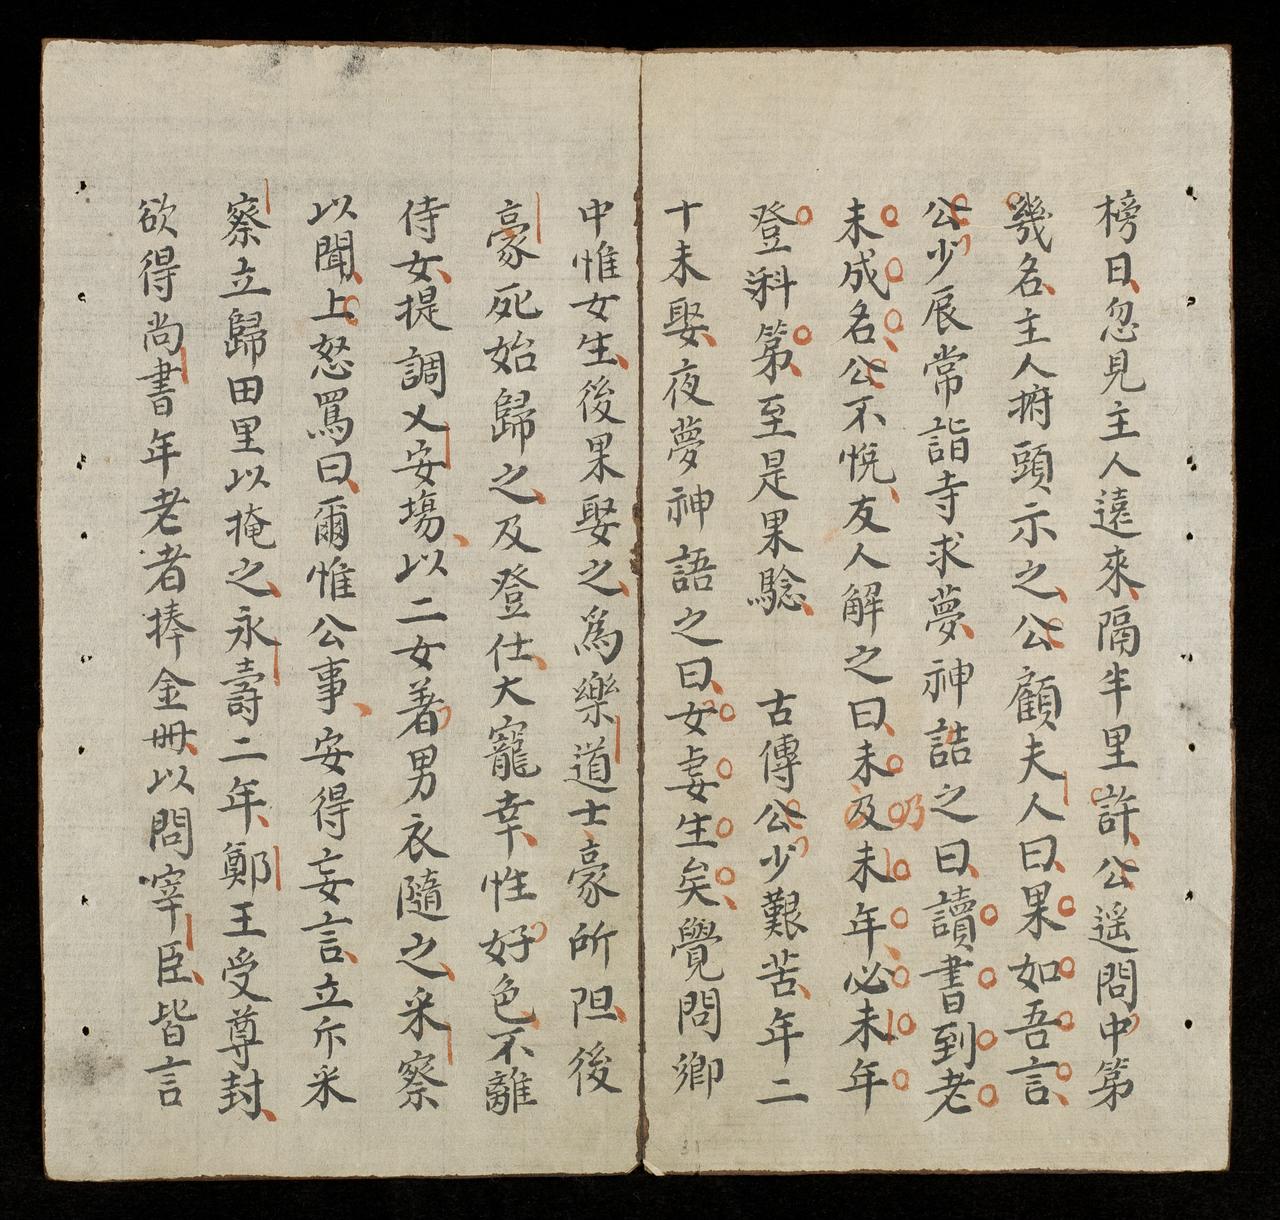 榜日忽見主人遠來隔半里許公遥問中第
幾名主人拊頭示之公顧夫人曰果如吾言
公少辰常詣寺求夢神詰之曰讀書到老
未成名公不悅友人解之曰未及未年必未年
乃
登科第至是果騐 古傳公少艱苦年二
十未娶夜夢神語之曰女妻生矣覺問鄉
中惟女生後果娶之爲樂道士豪所阻後
豪死始歸之及登仕大寵幸性好色不離
侍女提調乂安塲以二女著男衣隨之采察
以聞上怒罵曰爾惟公事安得妄言立斥采
察立歸田里以掩之永壽二年鄭王受尊封
欲得尚書年老者捧金冊以問宰臣皆言